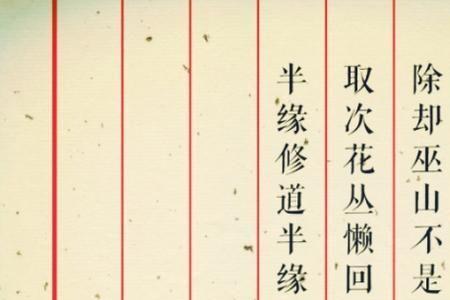 除却巫山不是
取次花丛懒回
半缘修道半缘